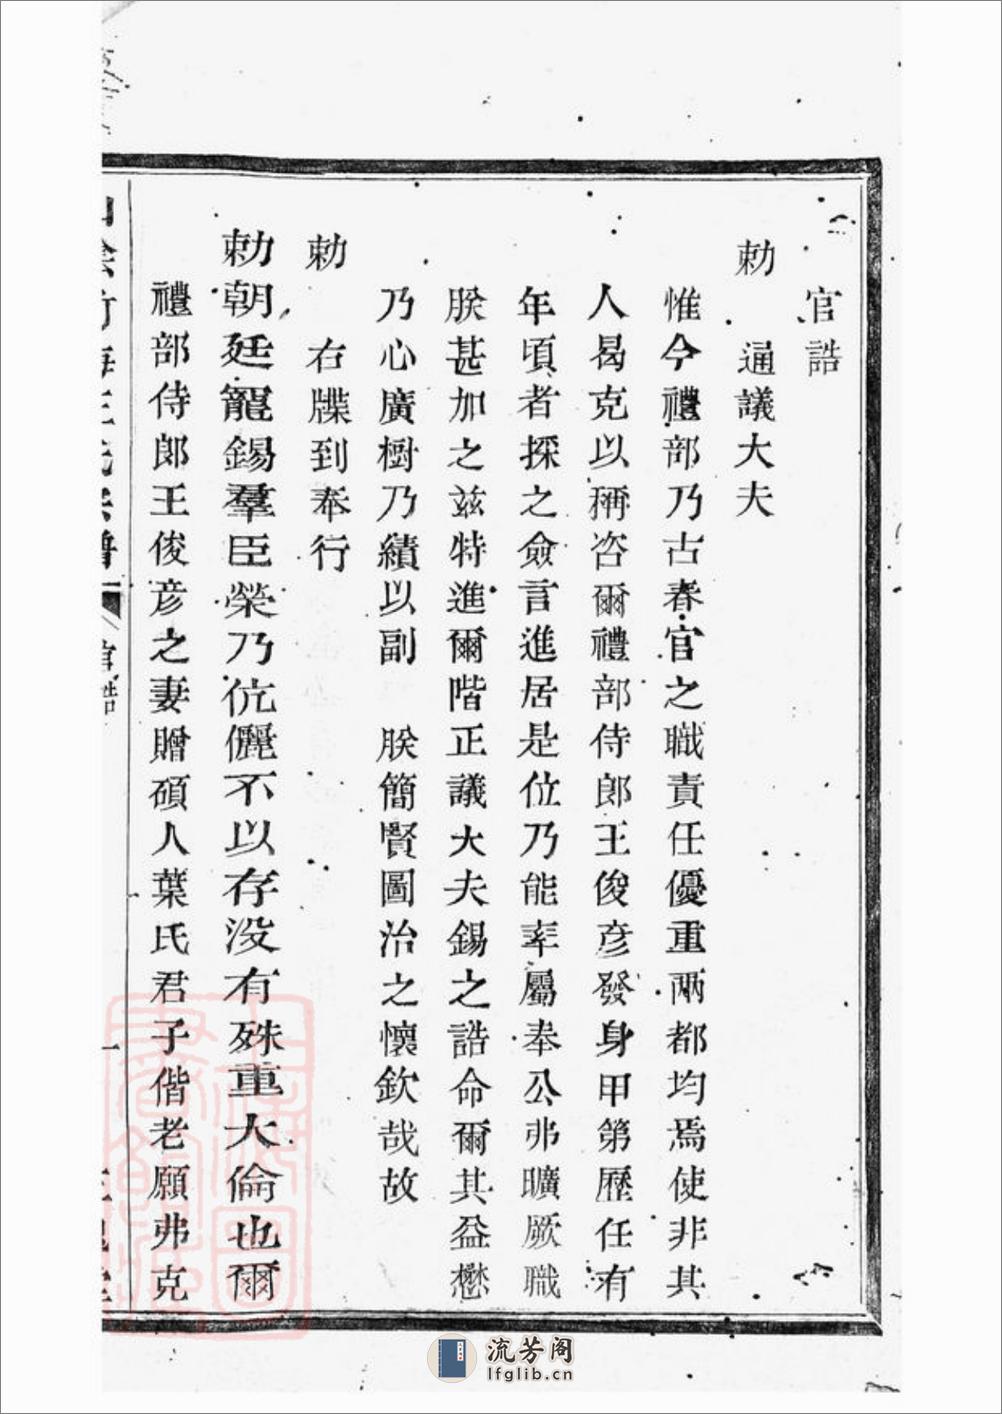 官誥
勅　通議大夫
惟今禮部乃古春官之職責任優重兩都均焉使非其
人曷克以稱咨爾禮部侍郎王俊彦發身甲第歷任有
年頃者採之僉言進居是位乃能率屬奉公弗曠厥職
朕甚加之兹特進爾階正議大夫錫之誥命爾其益懋
乃心廣樹乃績以副　朕簡賢圖治之懷欽哉故
勅　右牒到奉行
勅朝廷寵錫羣臣榮乃伉儷不以存没有殊重大倫也爾
禮部侍郎王俊彦之妻贈碩人葉氏君子偕老願弗克
王氏宗譜　官誥　一　三槐堂
流芳阁
lfglib.cn